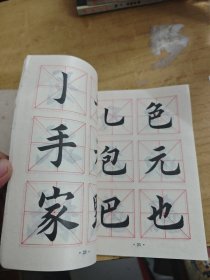 亅 乚 色
手 泡 元
家 肥 也